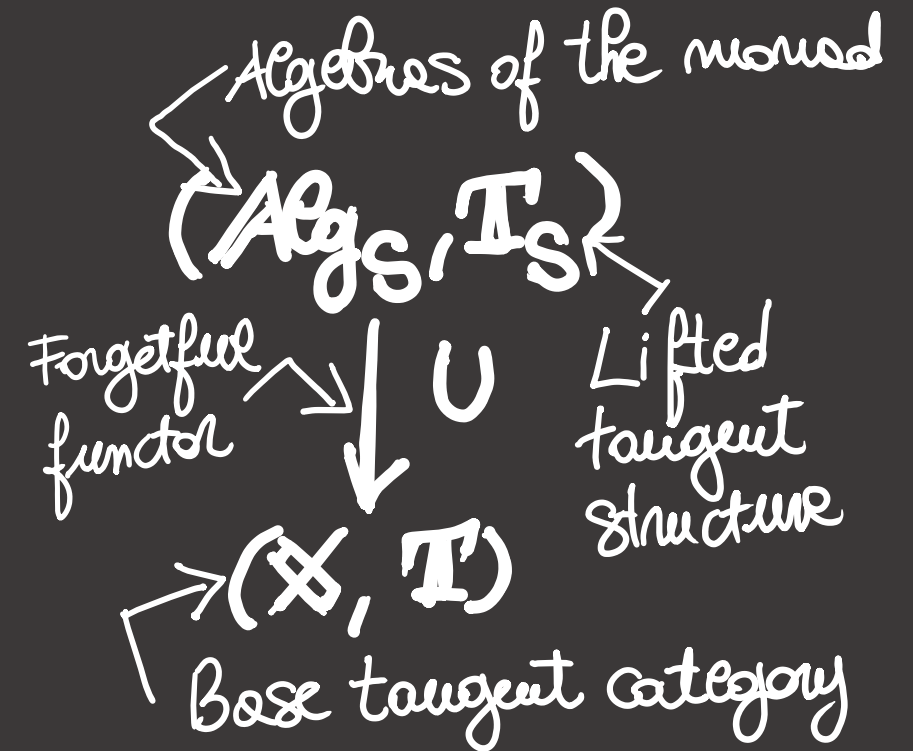 Algebras of the monad
(Alg_S, 𝕋_S)
Forgetful
functor
U
Lifted
tangent
structure
(𝕏, 𝕋)
Base tangent category